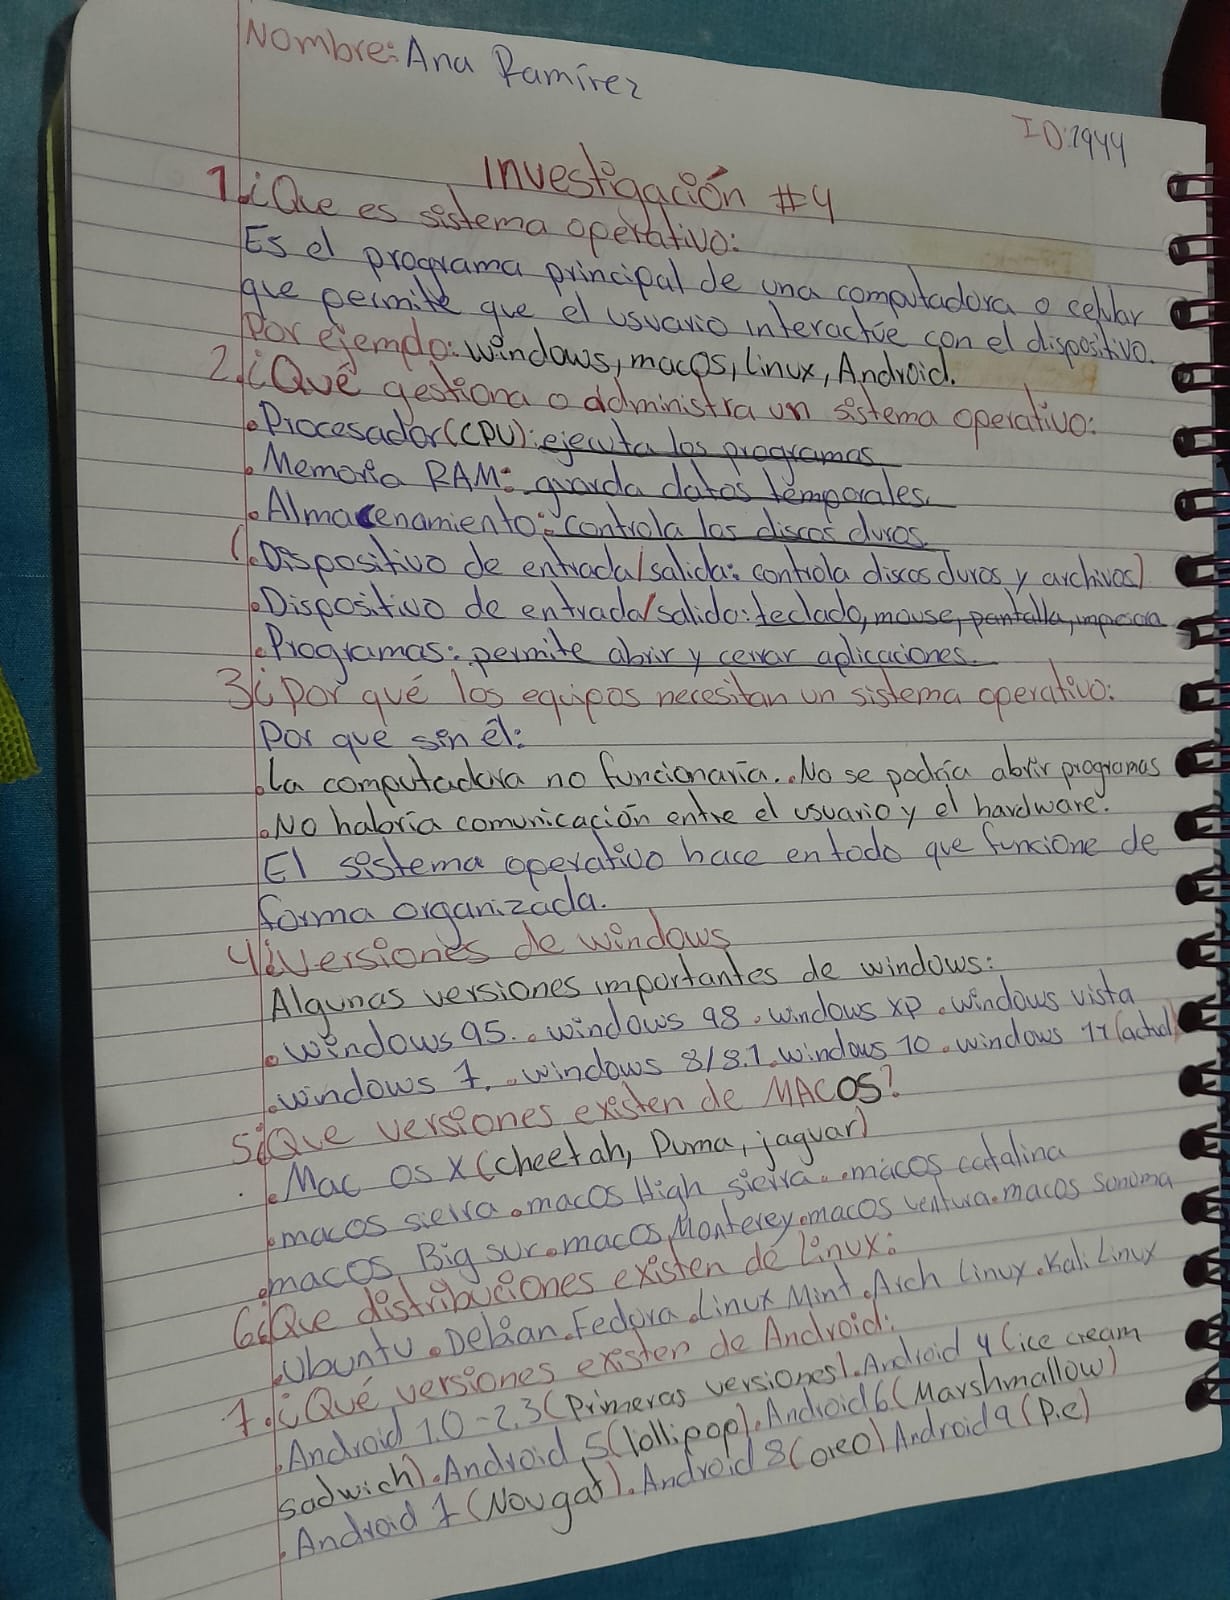 Nombre: Ana Ramírez
ID:2944
Investigación #4
1.¿Que es sistema operativo:
Es el programa principal de una computadora o celular
que permite que el usuario interactúe con el dispositivo.
Por ejemplo: windows, macOS, linux, Android.
2.¿Qué gestiona o administra un sistema operativo:
•Procesador(CPU): ejecuta los programas
•Memoria RAM: guarda datos temporales.
•Almacenamiento: controla los discos duros.
(•Dispositivo de entrada/salida: controla discos duros y archivos)
•Dispositivo de entrada/salida: teclado, mouse, pantalla, impesora
•Programas: permite abrir y cerrar aplicaciones.
3¿Por qué los equipos necesitan un sistema operativo:
Por que sin él:
•La computadora no funcionaría. •No se podría abrir programas
•No habría comunicación entre el usuario y el hardware.
El sistema operativo hace en todo que funcione de
forma organizada.
4¿versiones de windows
Algunas versiones importantes de windows:
•windows 95. •windows 98 •windows xp •windows vista
•windows 7. •windows 8/8.1 •windows 10 •windows 11 (actual)
5¿Que versiones existen de MACOS?
•Mac OS X (cheetah, Puma, jaguar)
•macos sierra •macOS High sierra •macos catalina
•macos Big sur •macOS Monterey •macos ventura •macos sonoma
6¿Que distribuciones existen de linux:
•Ubuntu •Debian •Fedora •Linux Mint •Arch linux •Kali Linux
7.¿Qué versiones existen de Android:
•Android 1.0-2.3 (Primeras versiones) •Android 4 (ice cream
sadwich) •Android 5 (lollipop) •Android 6 (Marshmallow)
•Android 7 (Nougat). •Android 8 (oreo) Android 9 (P.e)